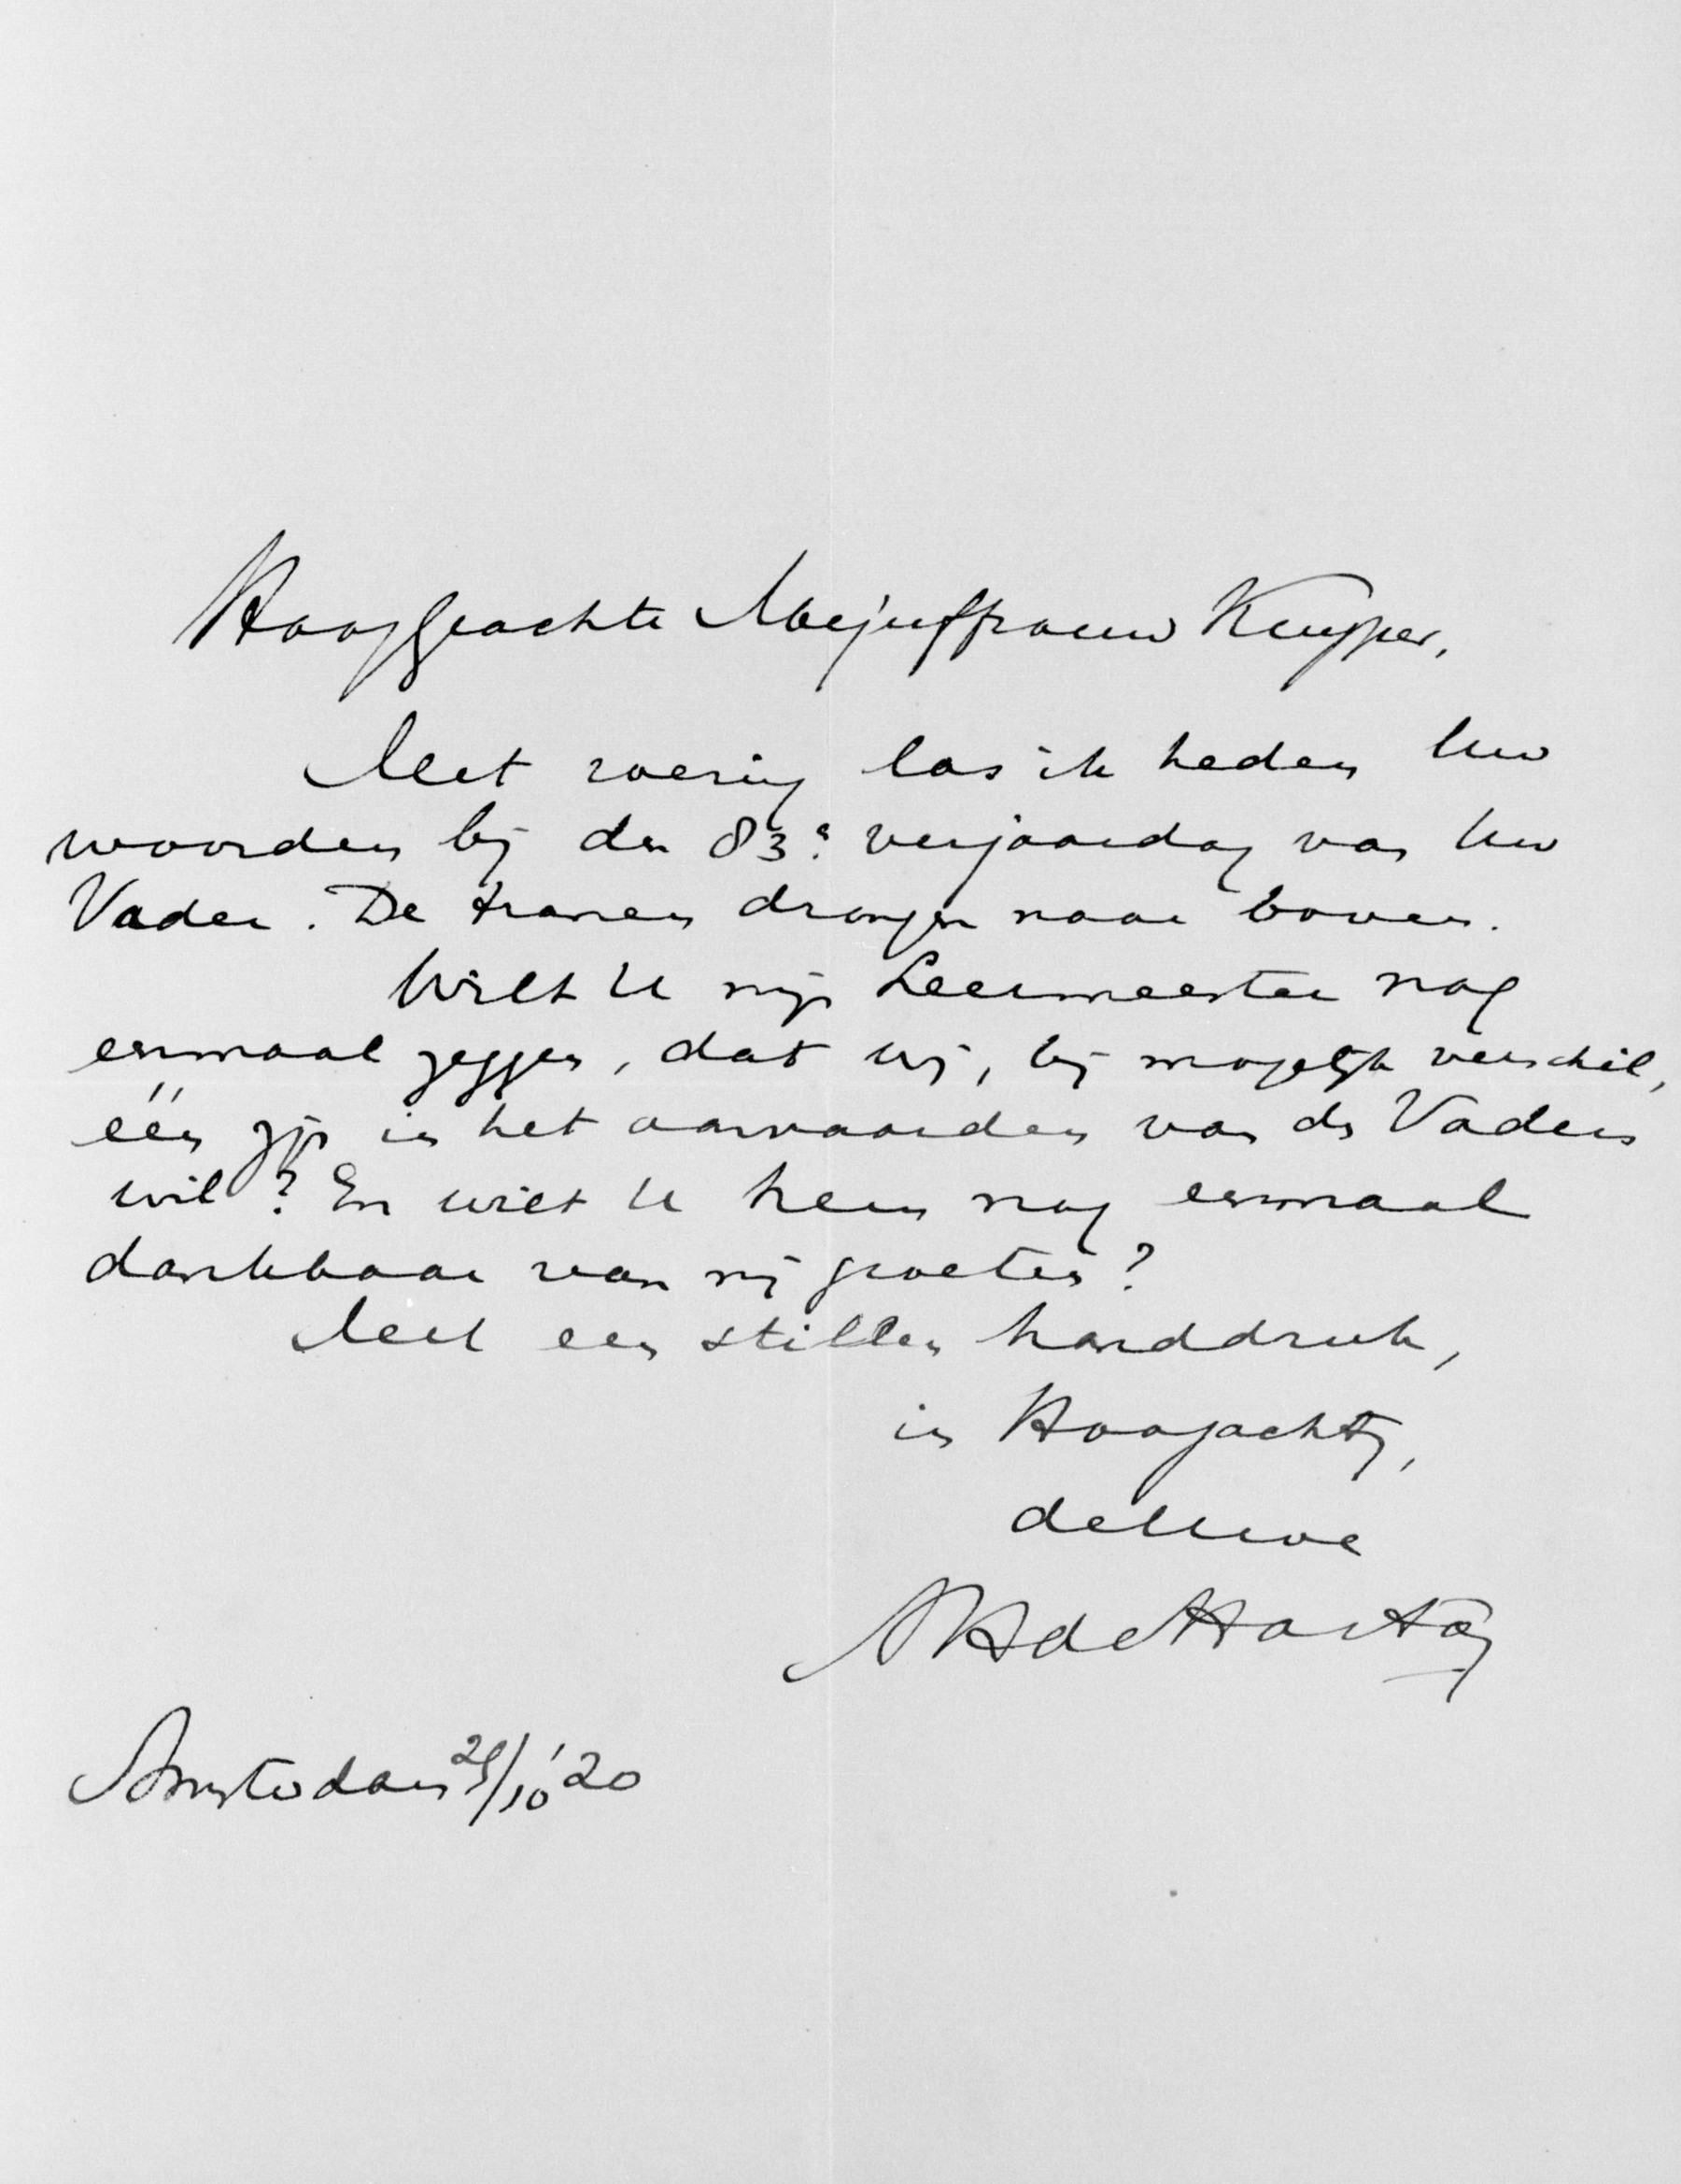 Hooggeachte Mejuffrouw Kuyper,
Met roering las ik heden Uw
woorden bij den 83e verjaardag van Uw
Vader. De tranen drongen naar boven.
Wilt U mijn Leermeester nog
eenmaal zeggen, dat wij, bij mogelijk verschil,
één zijn in het aanvaarden van des Vaders
wil? En wilt U hem nog eenmaal
dankbaar van mij groeten?
Met een stillen handdruk,
in Hoogachting,
de Uwe
AH de Hartog
Amsterdam 29/10 '20